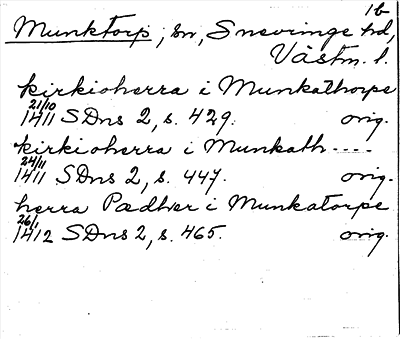 1b
Munktorp, sn, Snevringe hd,
Västm. l.
kirkioherra i Munkathorpe
21/10
1411 SDns 2, s. 429. orig.
kirkioherra i Munkath----
24/11
1411 SDns 2, s. 447. orig.
herra Pædher i Munkatorpe
26/1
1412 SDns 2, s. 465. orig.